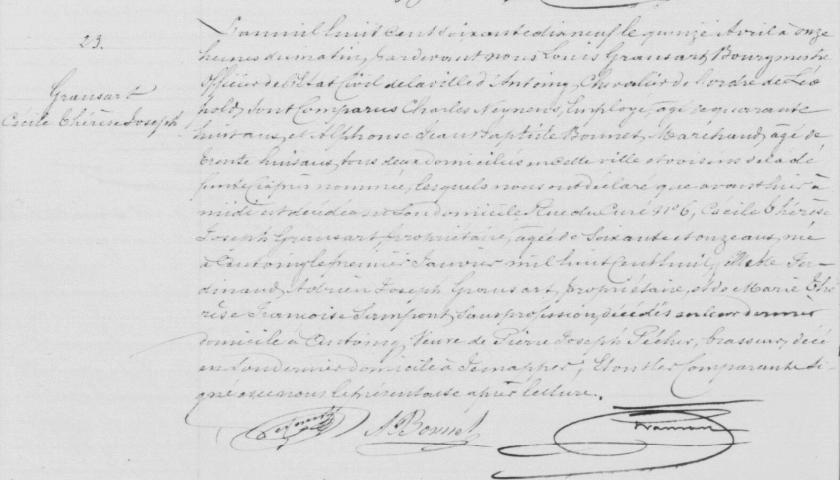 23.
Gransart
Cécile Thérèse Joseph
L'an mil huit cent soixante dix neuf le quinze Avril à onze
heures du matin, pardevant nous Louis Gransart Bourgmestre
Officier de l'Etat Civil de la ville d'Antoing, Chevalier de l'ordre de Léo
pold, sont Comparus Charles, Employé, âgé de quarante
huit ans, et Alphonse Jean Baptiste Bonnet, Maréchaud, âgé de
trente huit ans, tous deux domiciliés en cette ville et voisins de la dé
funte ci après nommée, lesquels nous ont déclaré que avant hier à
midi est décédée en son domicile Rue du Curé No 6, Cécile Thérèse
Joseph Gransart, propriétaire, agée de soixante et onze ans, née
à Antoing le premier Janvier mil huit cent huit, fille de Fer-
dinand Adrien Joseph Gransart, propriétaire, et de Marie Thé
rèse Françoise, sans profession, décédés en leur dernier
domicile à Antoing, Veuve de Pierre Joseph Pécher, brasseur, décé
en son dernier domicile à Jemappes; Et ont les Comparants si-
gné avec nous le présent acte après lecture.
A Bonnet